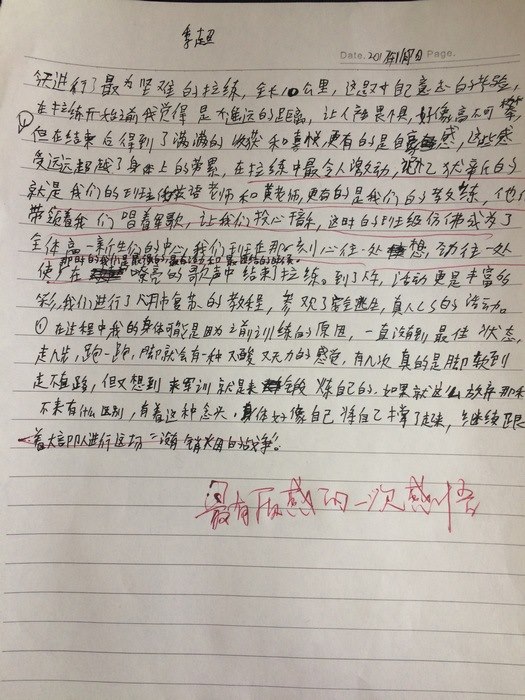 李超
Date. 201 Page.
今天进行了最为坚难的拉练，全长10公里，这是对自己意志的考验，
在拉练开始之前我觉得是个遥远的距离，让人谁畏惧，好像高不可攀，
①但在结束后得到了满满的收获和喜悦，更有的是自豪感，这些感
受远远超越了身体上的劳累，在拉练中最令人激动，振奋人心的
就是我们的班主任 老师和黄老师，更有的是我们的教练，他们
带领着我们唱着军歌，让我们放心精神，这时的班级仿佛成为了
全体高一新生们的中心，我们班在那一刻心往一处想，劲往一处
那时的我们是最强的
使，在嘹亮的歌声中结束了拉练。到了下午，活动更是丰富多
彩，我们进行了心肺复苏的教程，参观了安全逃生，真人CS的活动。
① 在过程中我的身体可能是因为之前训练的原因，一直没到最佳状态，
走几步，跑一跑，脚就会有一种又酸又无力的感觉，有几次真的是脚软到
走不直路，但又想到来军训就是来锻炼自己的，如果就这么放弃那和
不来有什么区别，有着这种念头，身体好像自己将自己撑了起来，继续跟
着大部队进行这场“没有硝烟的战争”。
最有质感的一次感悟